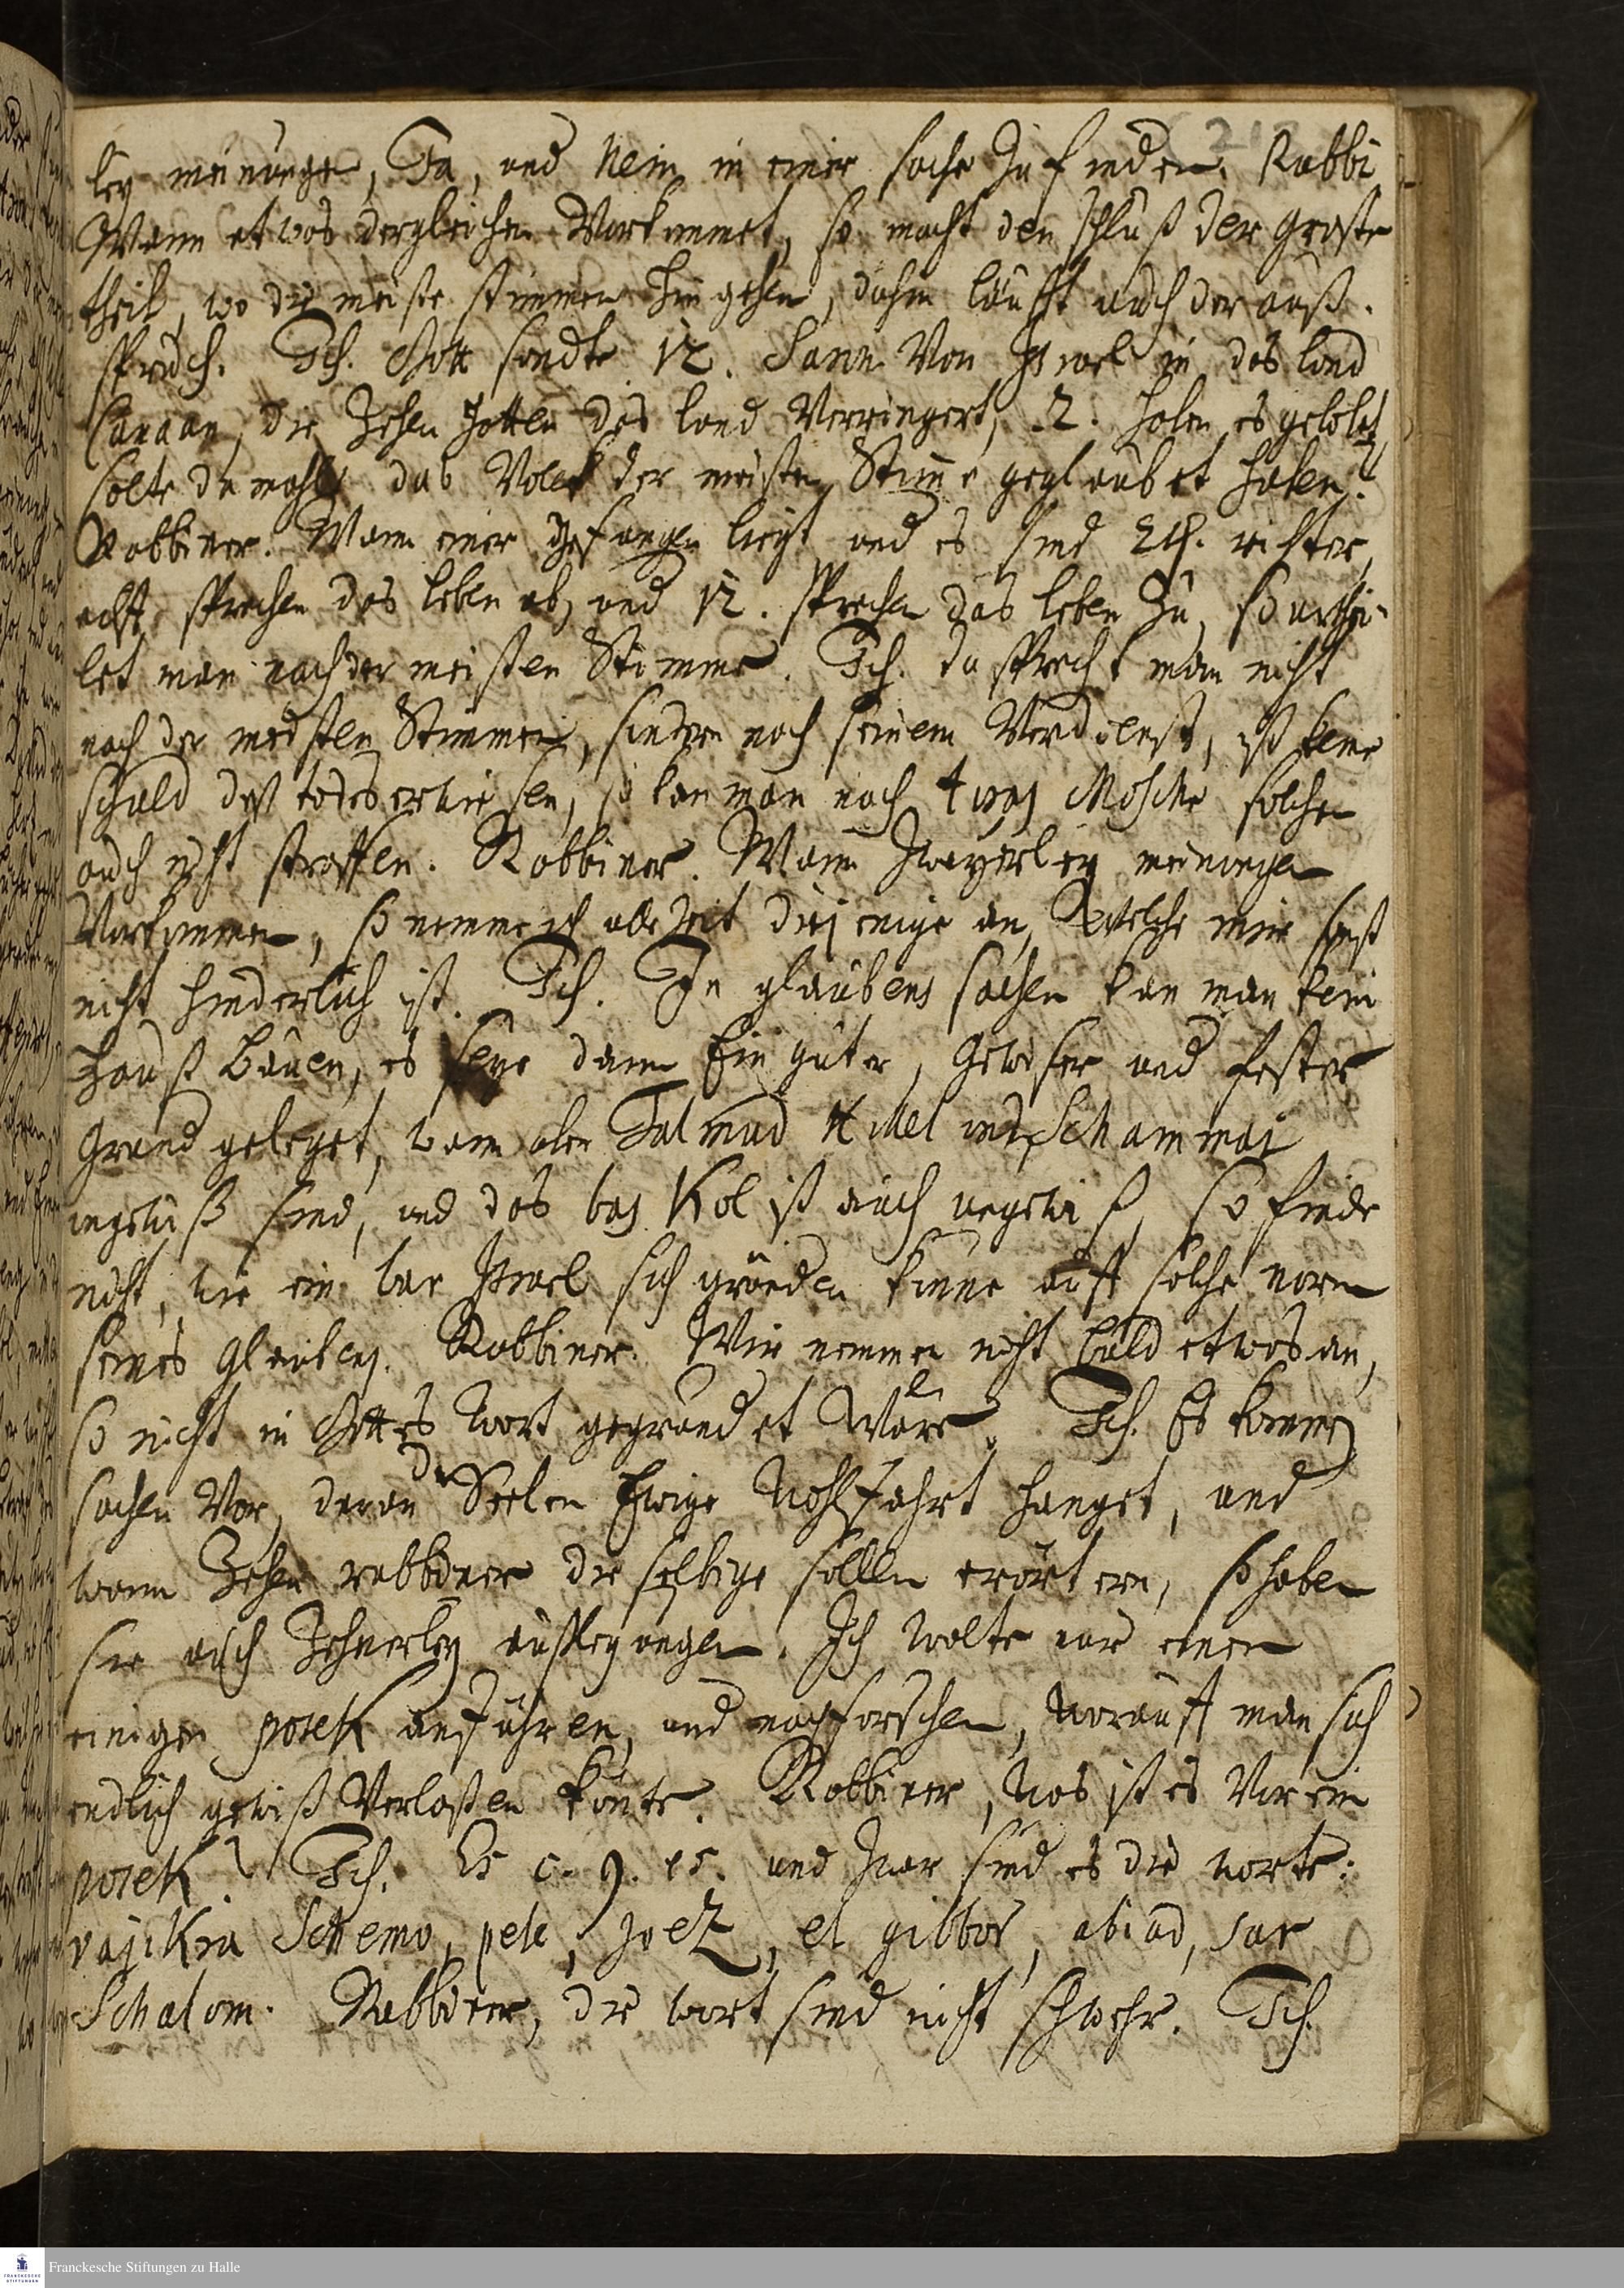 ley meinunge, Ja, und Nein in einer sache Zu finden. Rabbi
Wann etwas dergleichen Vorkommet, so macht den schluß der groste
theil, wo die meiste stimmen hin gehen, dahin läufft auch der auß-
spruch. Ich. Gott sandte 12. Von Israel in das land
Canaan, die Zehen hatten das land Verringert, 2. haben es gelobt,
solte damahls das Volck der meisten Stimme geglaubet haben?
Rabbiner. Wann einer gefangen liegt und es sind richter,
acht sprechen das leben ab, und 12. sprechen das leben Zu, so urthei-
let man nach der meisten Stimme. Ich. da spricht man nicht
nach der meisten Stimmen, sondern nach seinem Verdienst, ist keine
schuld deß todes erwiesen, so kan man nach Mosche solchen
auch nicht straffen. Rabbiner. Wann Zweyerley meinungen
Vorkommen, so nemme ich alle Zeit diejenige an, Welche mir sonst
nicht hinderlich ist. Ich. In glaubens sachen kan man kein
hauß bauen, es seye dann Ein guter, gewiser und fester
Grund geleget, wann aber Talmud Hillel und Schammai
ungewiß sind, und das bas Kol ist auch ungewiß, so finde
nicht, wie ein bar Israel sich gründen könne auff solche norm
seines Glaubens. Rabbiner. Wir nemmen nicht bald etwas an,
so nicht in Gottes Wort gegründet Wäre. Ich. Es kommen
sachen Vor, daran der Seelen Ewige Wohlfahrt hanget, und
wann Zehen rabbiner die selbige sollen erörtern, so haben
sie auch Zehnerley außlegungen. Ich wolte nur einen
einigen posek anführen, und nachforschen, worauff man sich
endlich gewiß Verlaßen könte. Rabbiner, Was ist es Vor ein
posek? Ich. Es c. 9. und Zwar sind es die worte:
vajikra Schemo, pele, joeZ, el gibbor, abiad, sar
Schalom. Rabbiner, die wort sind nicht schwehr. Ich.
Franckesche Stiftungen zu Halle